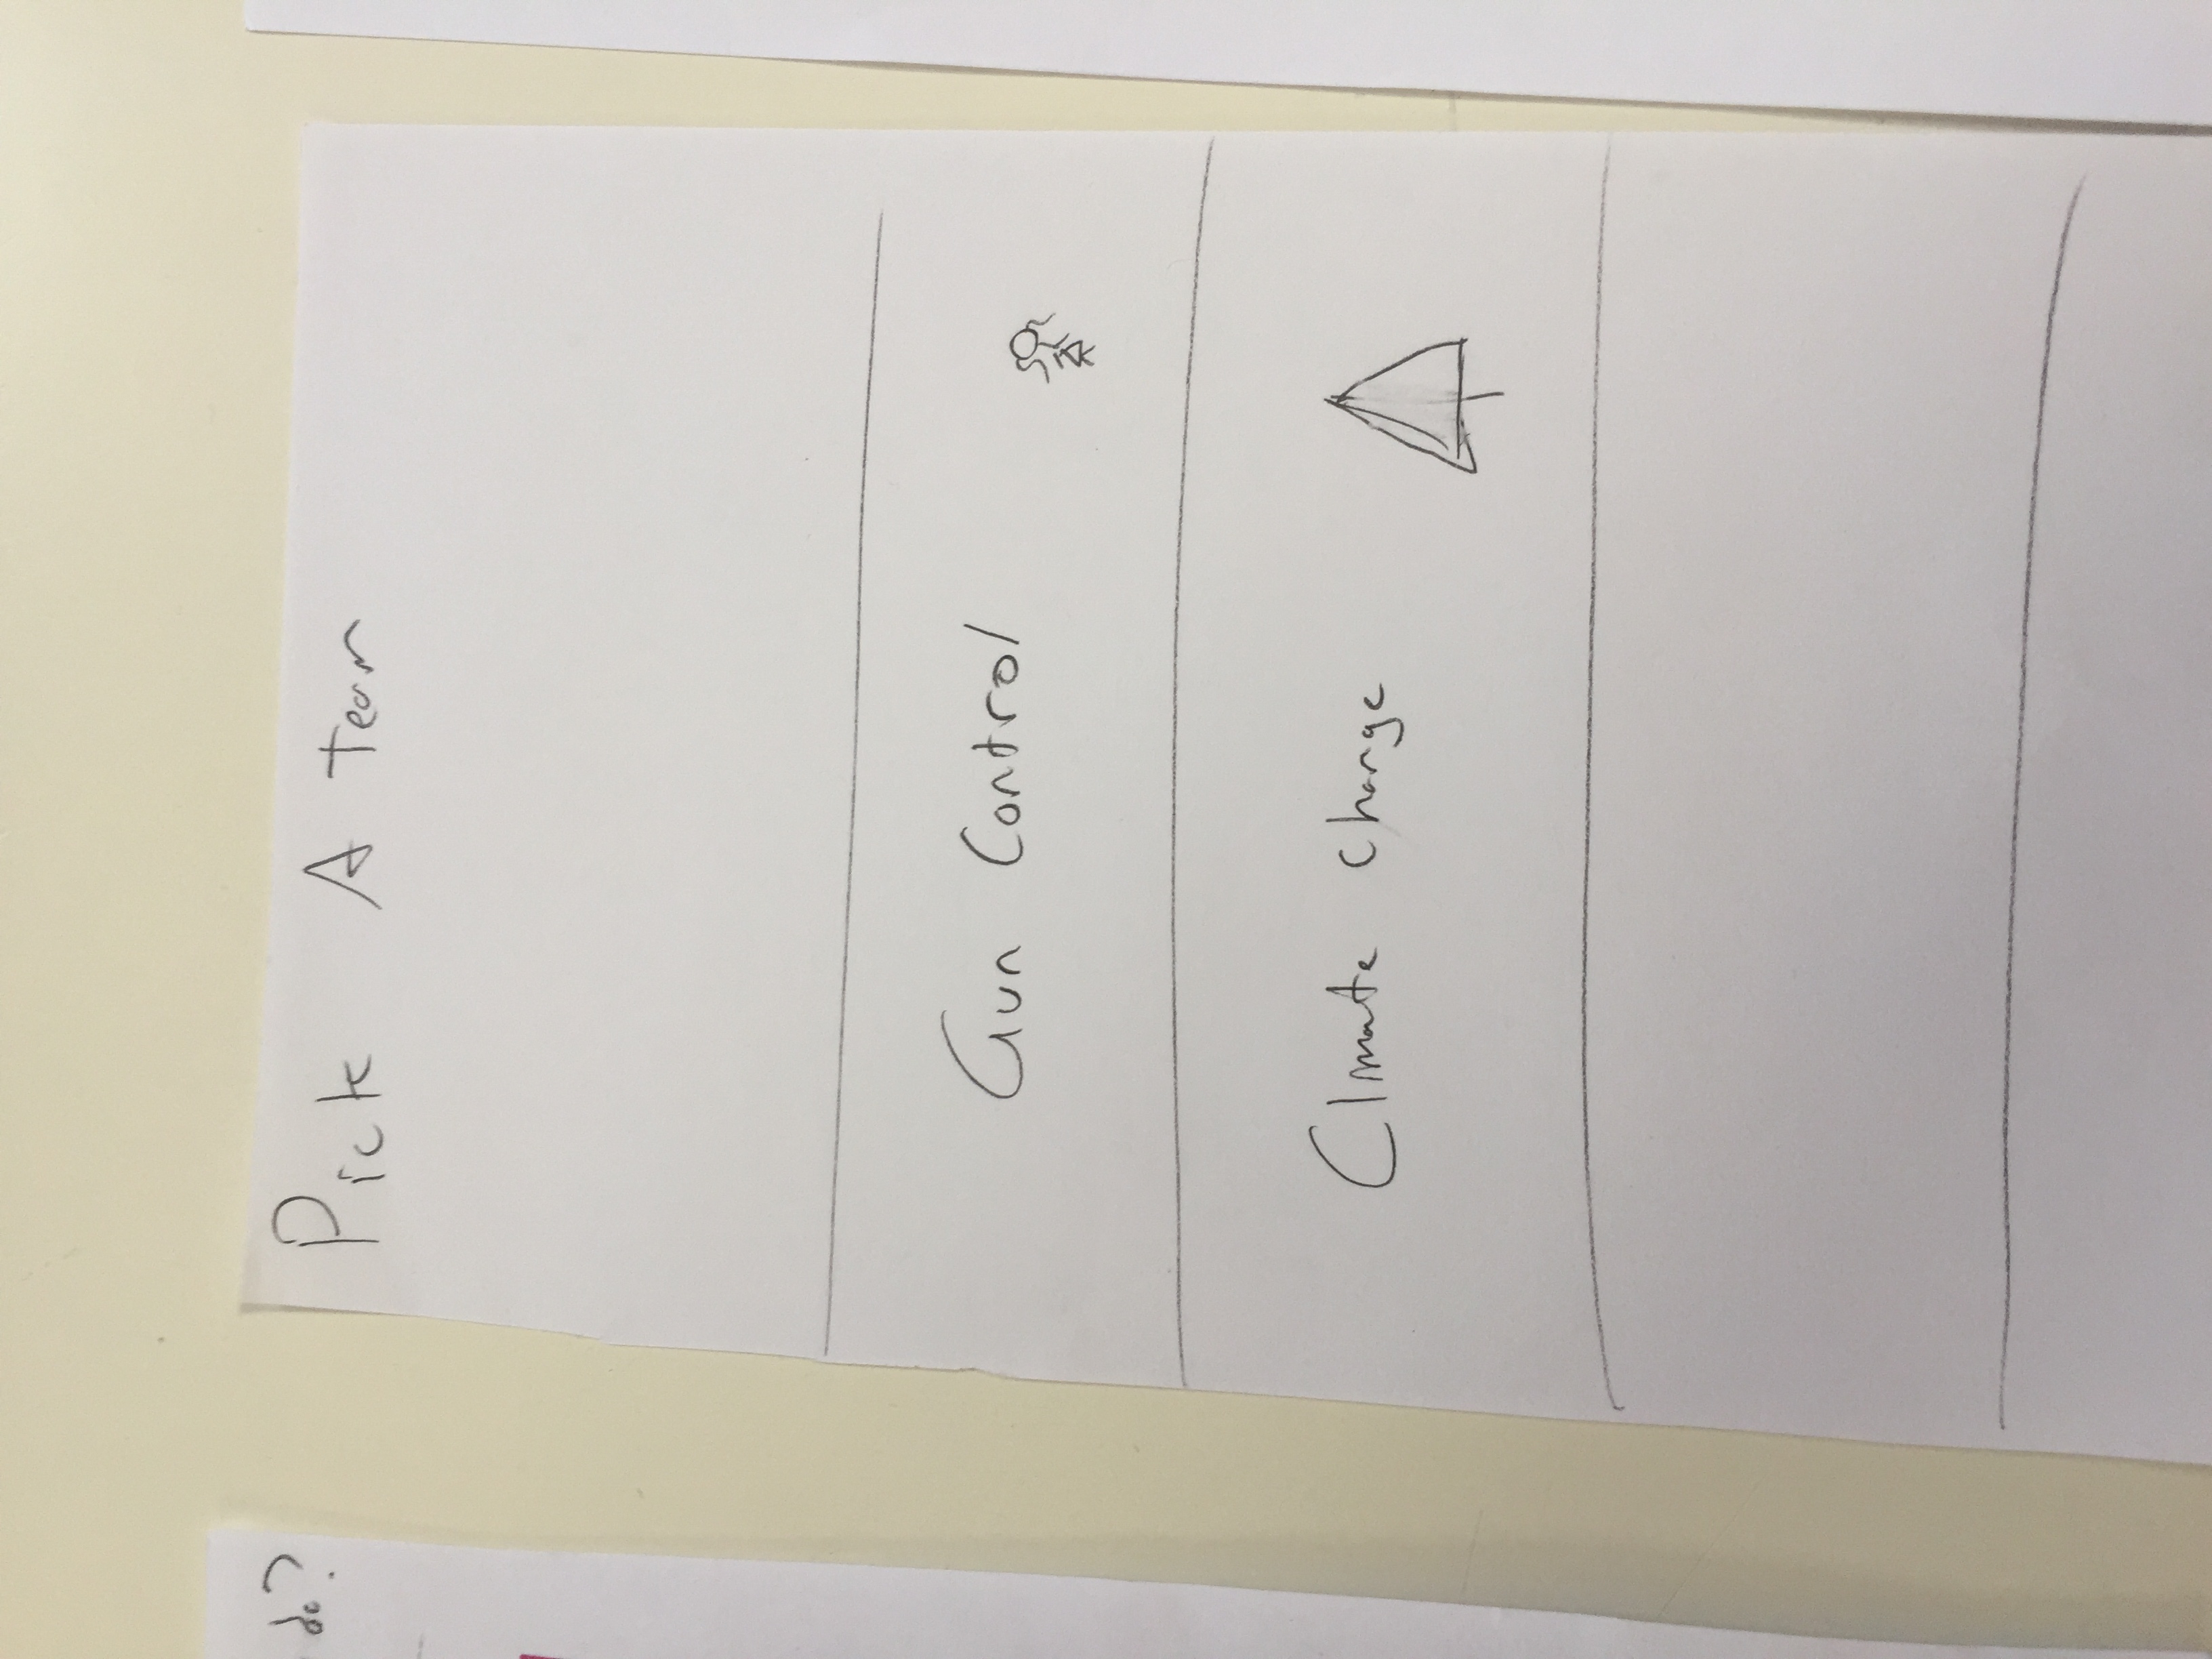 do?
Pick A Team
Gun Control
Climate change